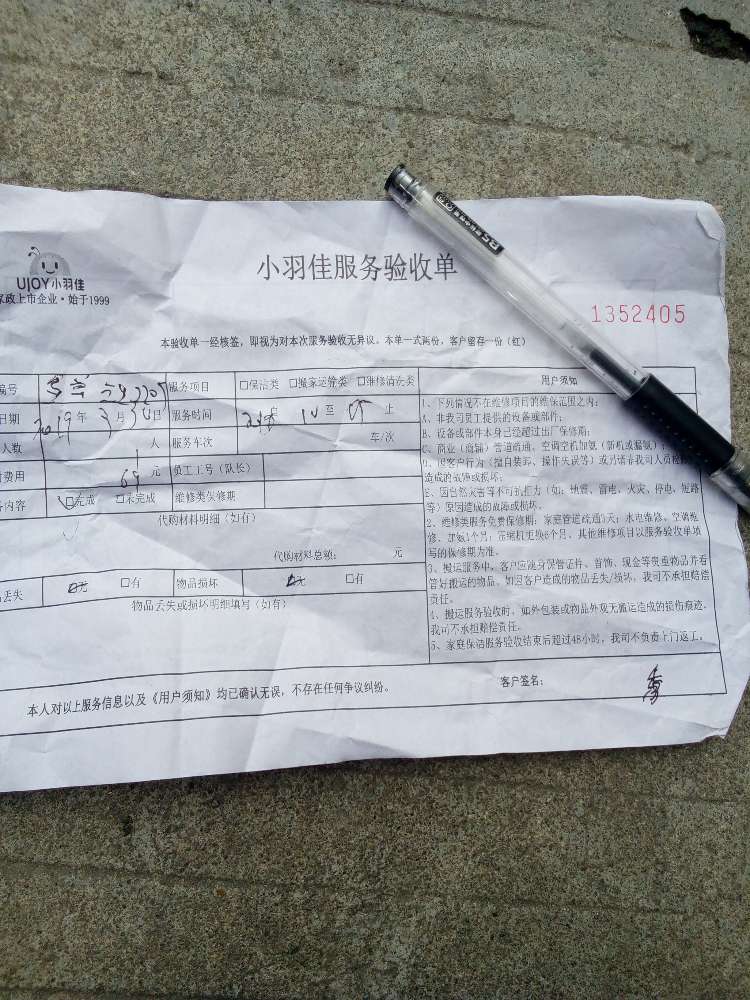 UJOY小羽佳
家政上市企业·始于1999
小羽佳服务验收单
1352405
本验收单一经核签，即视为对本次服务验收无异议。本单一式两份，客户留存一份（红）
编号 服务项目 □保洁类 □搬家运输类 □维修清洗类
日期 2019年3月 日 服务时间 至 止
人数 1 人 服务车次 车/次
费用 69 元 员工工号（队长）
内容 □完成 □未完成 维修类保修期
代购材料明细（如有）
代购材料总额： 元
丢失 □无 □有 物品损坏 □无 □有
物品丢失或损坏明细填写（如有）
用户须知
1、下列情况不在维修项目的维保范围之内：
A、非我司员工提供的设备或部件；
B、设备或部件本身已经超过出厂保修期；
C、商业（商铺）管道疏通、空调空机加氨（新机或漏氨）
D、因客户行为（擅自装卸、操作失误等）或另请非我司人员
造成的故障或损坏；
E、因自然灾害等不可抗拒力（如：地震、雷电、火灾、停电、短路
等）原因造成的故障或损坏。
2、维修类服务免费保修期：家庭管道疏通 天；水电维修、空调维
修、加氨1个月；压缩机更换6个月。其他维修项目以服务验收单填
写的保修期为准。
3、搬运服务中，客户应随身保管证件、首饰、现金等贵重物品并看
管好搬运的物品，如因客户造成的物品丢失/损坏，我司不承担赔偿
责任。
4、搬运服务验收时，如外包装或物品外观无搬运造成的损伤痕迹，
我司不承担赔偿责任。
5、家庭保洁服务验收结束后超过48小时，我司不负责上门返工。
本人对以上服务信息以及《用户须知》均已确认无误，不存在任何争议纠纷。
客户签名：